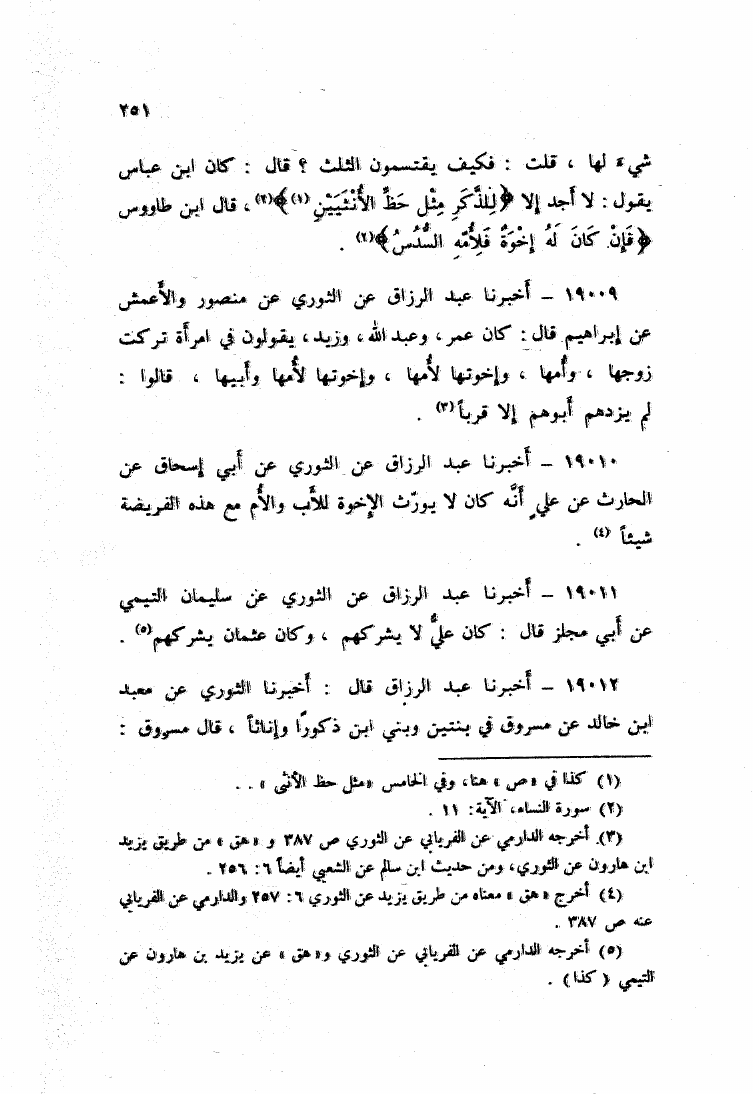 ٢٥١
شيء لها ، قلت : فكيف يقتسمون الثلث ؟ قال : كان ابن عباس
يقول : لا أجد إلا ﴿لِلذَّكَرِ مِثْل حَظِّ الأُنْثَيَيْنِ (١)﴾(٢) ، قال ابن طاووس
﴿فَإِنْ كَانَ لَهُ إِخْوَةٌ فَلِأُمِّهِ السُّدُسُ﴾(٢) .
١٩٠٠٩ – أخبرنا عبد الرزاق عن الثوري عن منصور والأعمش
عن إبراهيم قال : كان عمر ، وعبد الله ، وزيد ، يقولون في امرأة تركت
زوجها ، وأُمها ، وإخوتها لأُمها ، وإخوتها لأُمها وأبيها ، قالوا :
لم يزدهم أبوهم إلا قرباً(٣) .
١٩٠١٠ – أخبرنا عبد الرزاق عن الثوري عن أبي إسحاق عن
الحارث عن عليٍ أنَّه كان لا يورّث الإخوة للأَب والأُم مع هذه الفريضة
شيئاً (٤) .
١٩٠١١ – أخبرنا عبد الرزاق عن الثوري عن سليمان التيمي
عن أبي مجلز قال : كان عليٌّ لا يشركهم ، وكان عثمان يشركهم(٥) .
١٩٠١٢ – أخبرنا عبد الرزاق قال : أخبرنا الثوري عن معبد
ابن خالد عن مسروق في بنتين وبني ابن ذكورًا وإناثاً ، قال مسروق :
(١) كذا في «ص» هنا، وفي الخامس «مثل حظ الأنثى» . .
(٢) سورة النساء، الآية: ١١ .
(٣) أخرجه الدارمي عن الفريابي عن الثوري ص ٣٨٧ و «هق» من طريق يزيد
ابن هارون عن الثوري، ومن حديث ابن سالم عن الشعبي أيضاً ٦: ٢٥٦ .
(٤) أخرج «هق» معناه من طريق يزيد عن الثوري ٦: ٢٥٧ والدارمي عن الفريابي
عنه ص ٣٨٧ .
(٥) أخرجه الدارمي عن الفريابي عن الثوري و«هق» عن يزيد بن هارون عن
التيمي (كذا) .